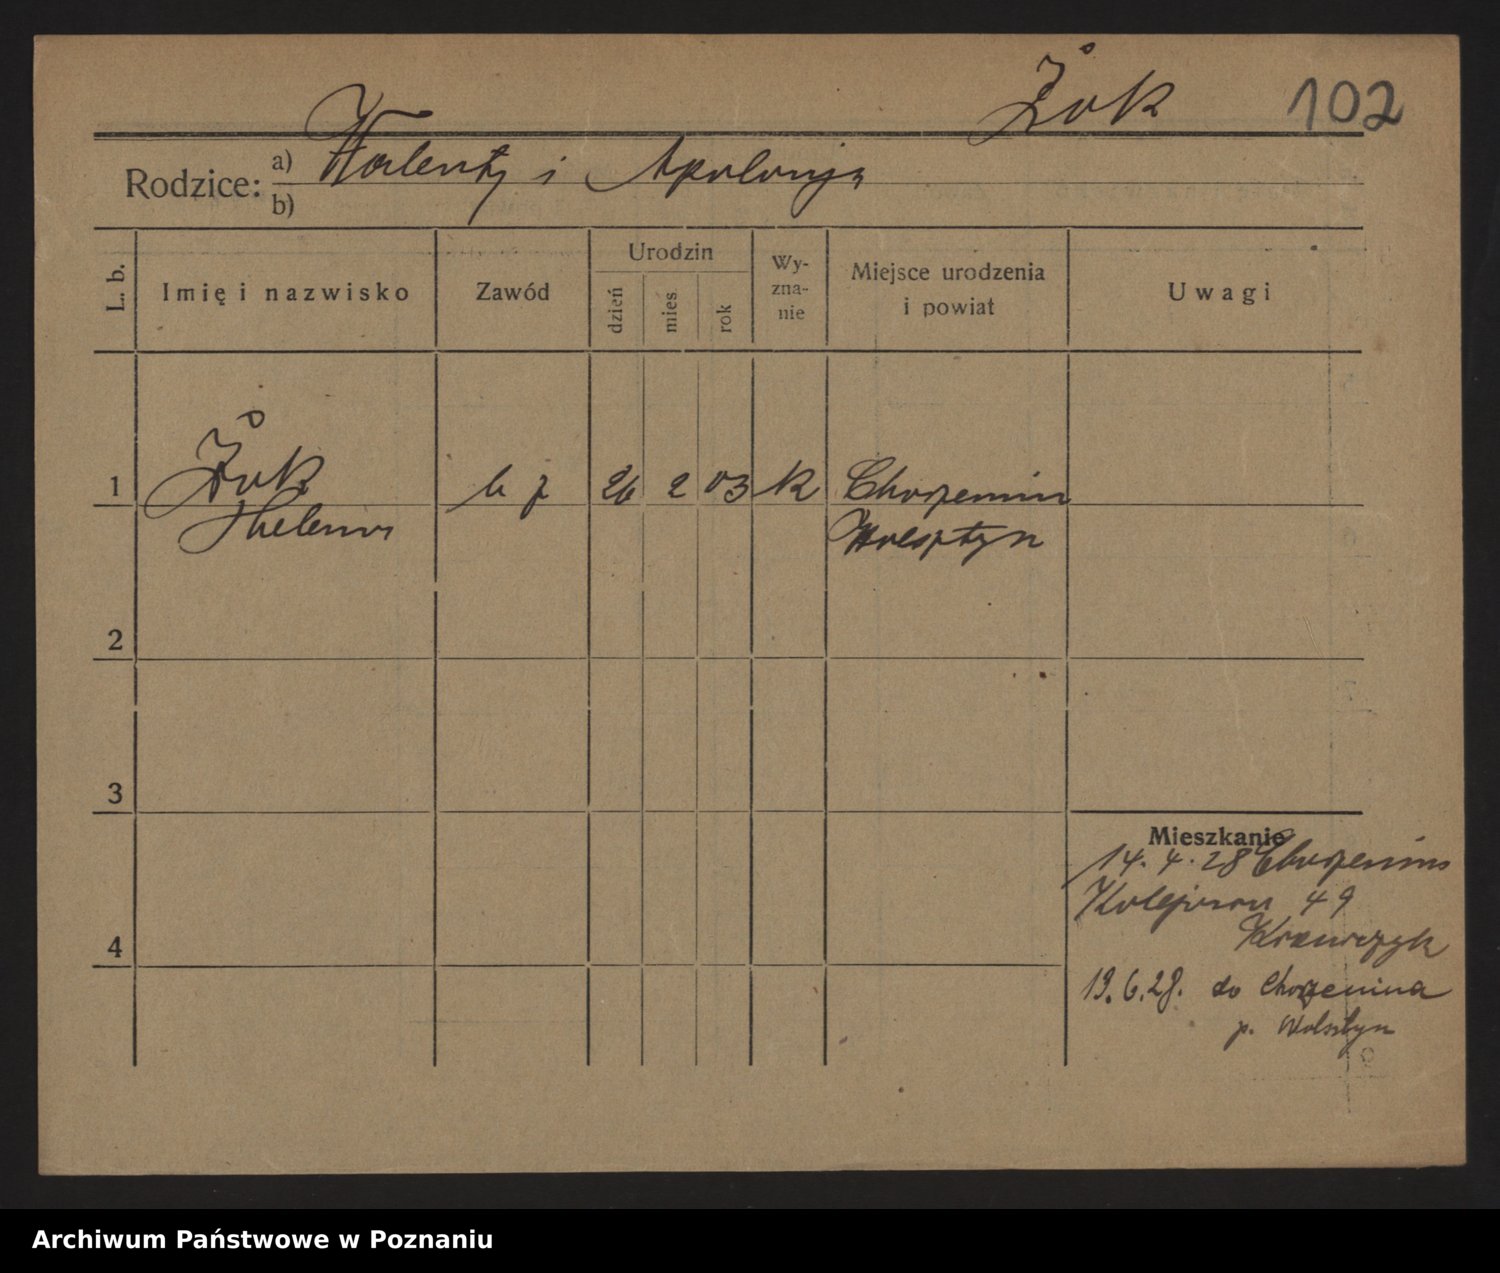 Żok 102
Rodzice: a) Walenty i Apolonja
b)
L. b.
Imię i nazwisko
Zawód
Urodzin
dzień
mies
rok
Wy-
zna-
nie
Miejsce urodzenia
i powiat
Uwagi
1 Żok 26 2 03 k Chorzemin
Helena Wolsztyn
2
3
4
Mieszkanie
14. 4. 28 Chorzemin
Kolejowa 49
Krawczyk
19. 6. 28. do Chorzemina
p. Wolsztyn
Archiwum Państwowe w Poznaniu